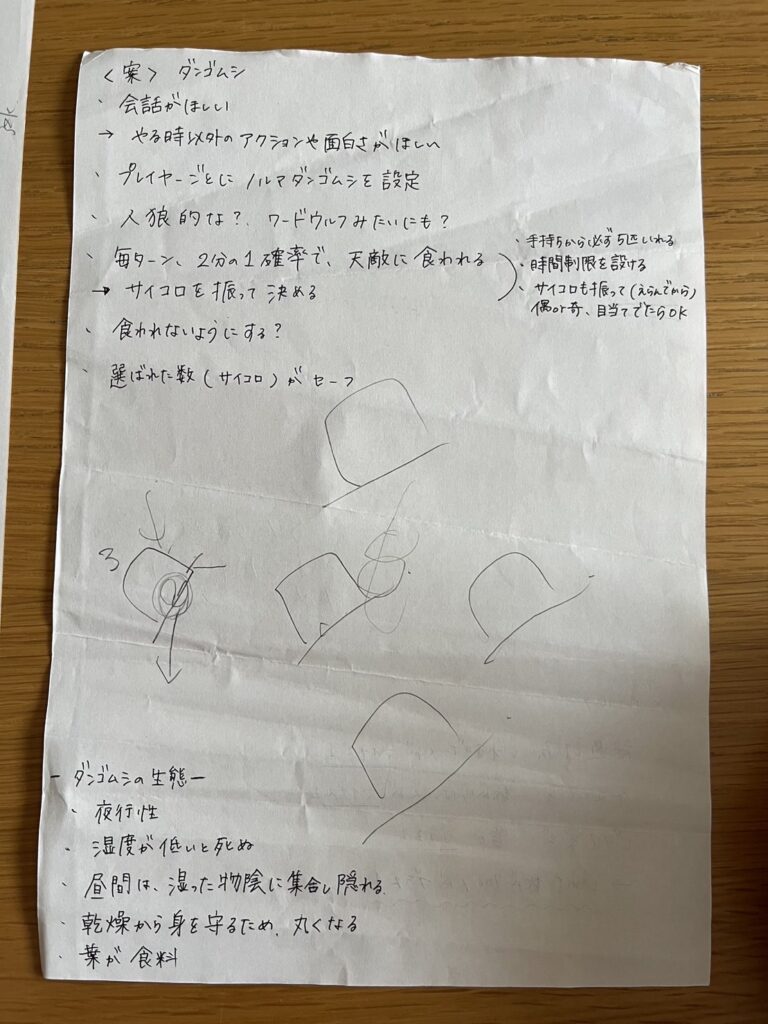 〈案〉 ダンゴムシ
・ 会話がほしい
→ やる時以外のアクションや面白さがほしい
・ プレイヤーごとに ノルマダンゴムシを 設定
・ 人狼的な? ワードウルフみたいにも?
・ 毎ターン、2分の1確率で、天敵に食われる
→ サイコロを振って決める
・ 手持ちから必ず5匹いれる
・ 時間制限を設ける
・ サイコロも振って(えらんでから)
偶or奇、目当てでたらOK
・ 食われないようにする?
・ 選ばれた数(サイコロ)がセーフ
3
- ダンゴムシの生態 -
・ 夜行性
・ 湿度が低いと死ぬ
・ 昼間は、湿った物陰に集合し隠れる
・ 乾燥から身を守るため、丸くなる
・ 葉が食料